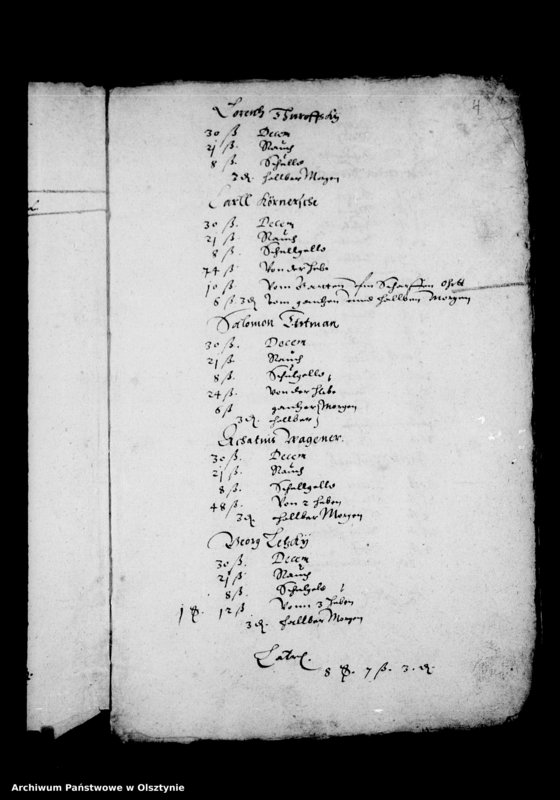 4
Lorentz
30 ß. Decem
21 ß. Rauch
8 ß. Schulle
3 ₰. halber Morgen
Carll Körnersche
30 ß. Decem
21 ß. Rauch
8 ß. Schullgelt
74 ß. Von der hube
10 ß. Vom
6 ß. 3 ₰ vom gantzen und halben Morgen
Salomon
30 ß. Decem
21 ß. Rauch
8 ß. Schulgelt
24 ß. von der hube
6 ß gantzer Morgen
3 ₰. halber
Achatius Wagener.
30 ß. Decem
21 ß. Rauch
8 ß. Schullgelt
48 ß. Von 2 huben
3 ₰ halber Morgen
Georg
30 ß. Decem
21 ß. Rauch
8 ß. Schulgelt
12 ß Vonn 3 huben
3 ₰. halber Morgen
Latus.
8 7 ß. 3 ₰.
Archiwum Państwowe w Olsztynie